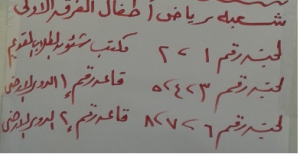 شعبة رياض أطفال الفرقة الأولى
لجنة رقم ١ ٢ مكتب شئون الطلاب القديم
لجنة رقم ٣ ٤ ٥ قاعة رقم ١ الدور الأرضى
لجنة رقم ٦ ٧ ٨ قاعة رقم ٢ الدور الأرضى